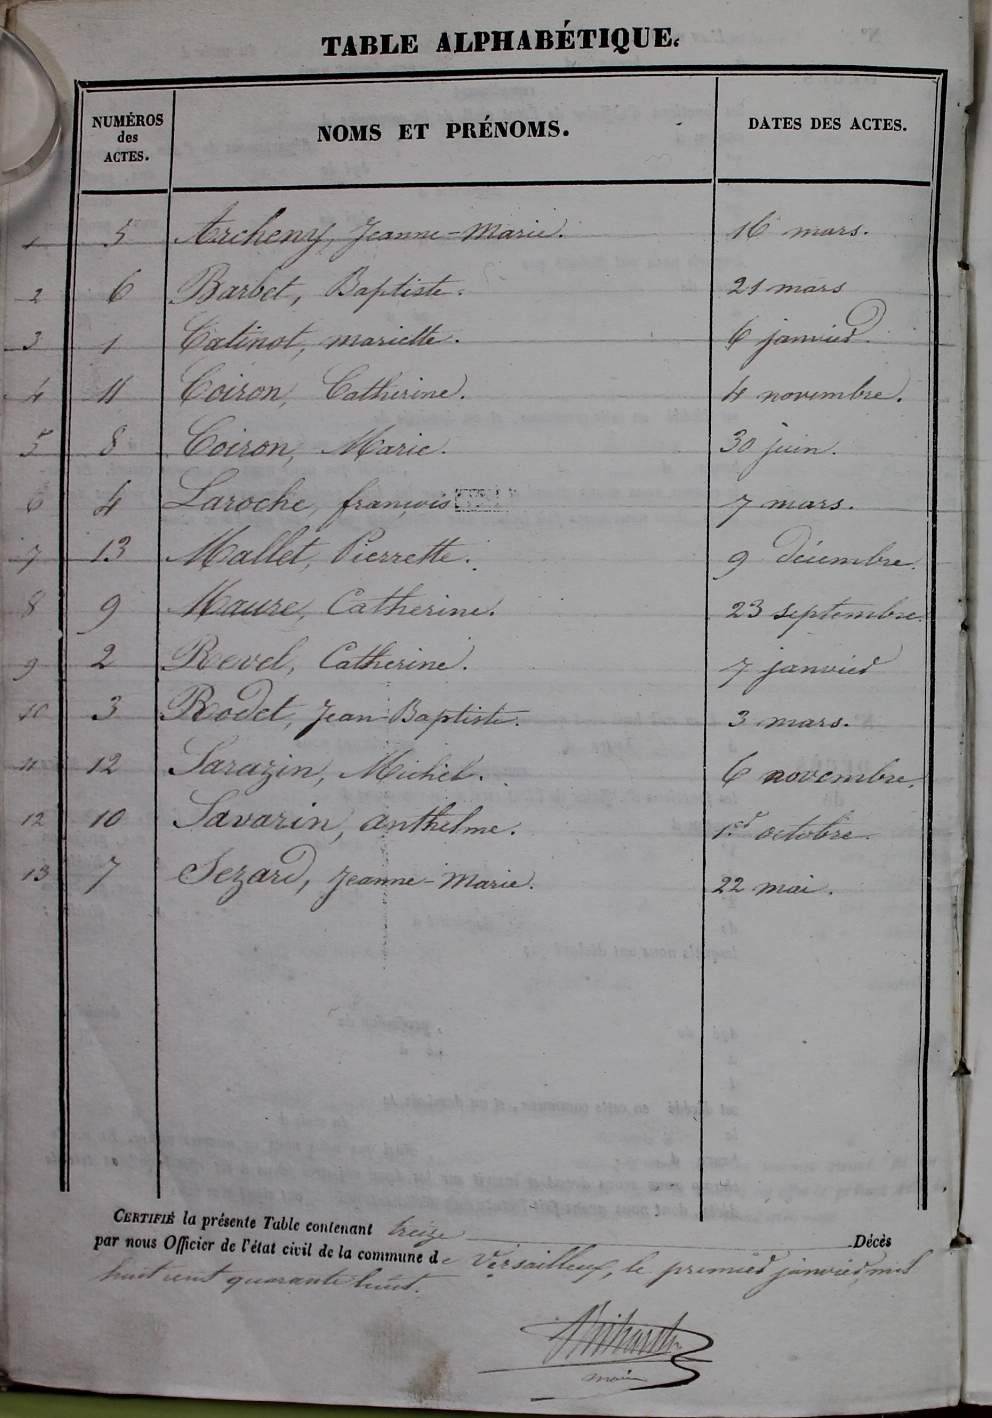 TABLE ALPHABÉTIQUE.
NUMÉROS des ACTES. NOMS ET PRÉNOMS. DATES DES ACTES.
1 5 Archeny, Jeanne-Marie. 16 mars.
2 6 Barbet, Baptiste. 21 mars
3 1 Catinot, mariette. 6 janvier.
4 11 Coiron, Catherine. 4 novembre.
5 8 Coiron, Marie. 30 juin.
6 4 Laroche, françois 7 mars.
7 13 Mallet, Pierrette. 9 décembre.
8 9 Maure, Catherine. 23 septembre.
9 2 Revel, Catherine. 7 janvier
10 3 Rodet, Jean-Baptiste. 3 mars.
11 12 Sarazin, Michel. 6 novembre.
12 10 Savarin, anthelme. 1.er octobre.
13 7 Sezard, Jeanne-Marie. 22 mai.
CERTIFIÉ la présente Table contenant treize Décès
par nous Officier de l'état civil de la commune de Versailleux, le premier janvier mil
huit cent quarante huit.
maire